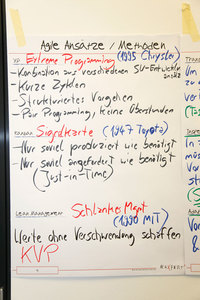 Agile Ansätze / Methoden
XP Extreme Programming (1995 Chrysler)
- Kombination aus verschiedenen SW-Entwickler
- Kurze Zyklen
- Strukturiertes Vorgehen
- Pair Programming, keine Überstunden
Signalkarte (1947 Toyota)
- Nur soviel produziert wie benötigt
- Nur soviel angefordert wie benötigt
(Just-in-Time)
Lean Management Schlankes Mgmt
(1990 MIT)
Werte ohne Verschwendung schaffen
KVP